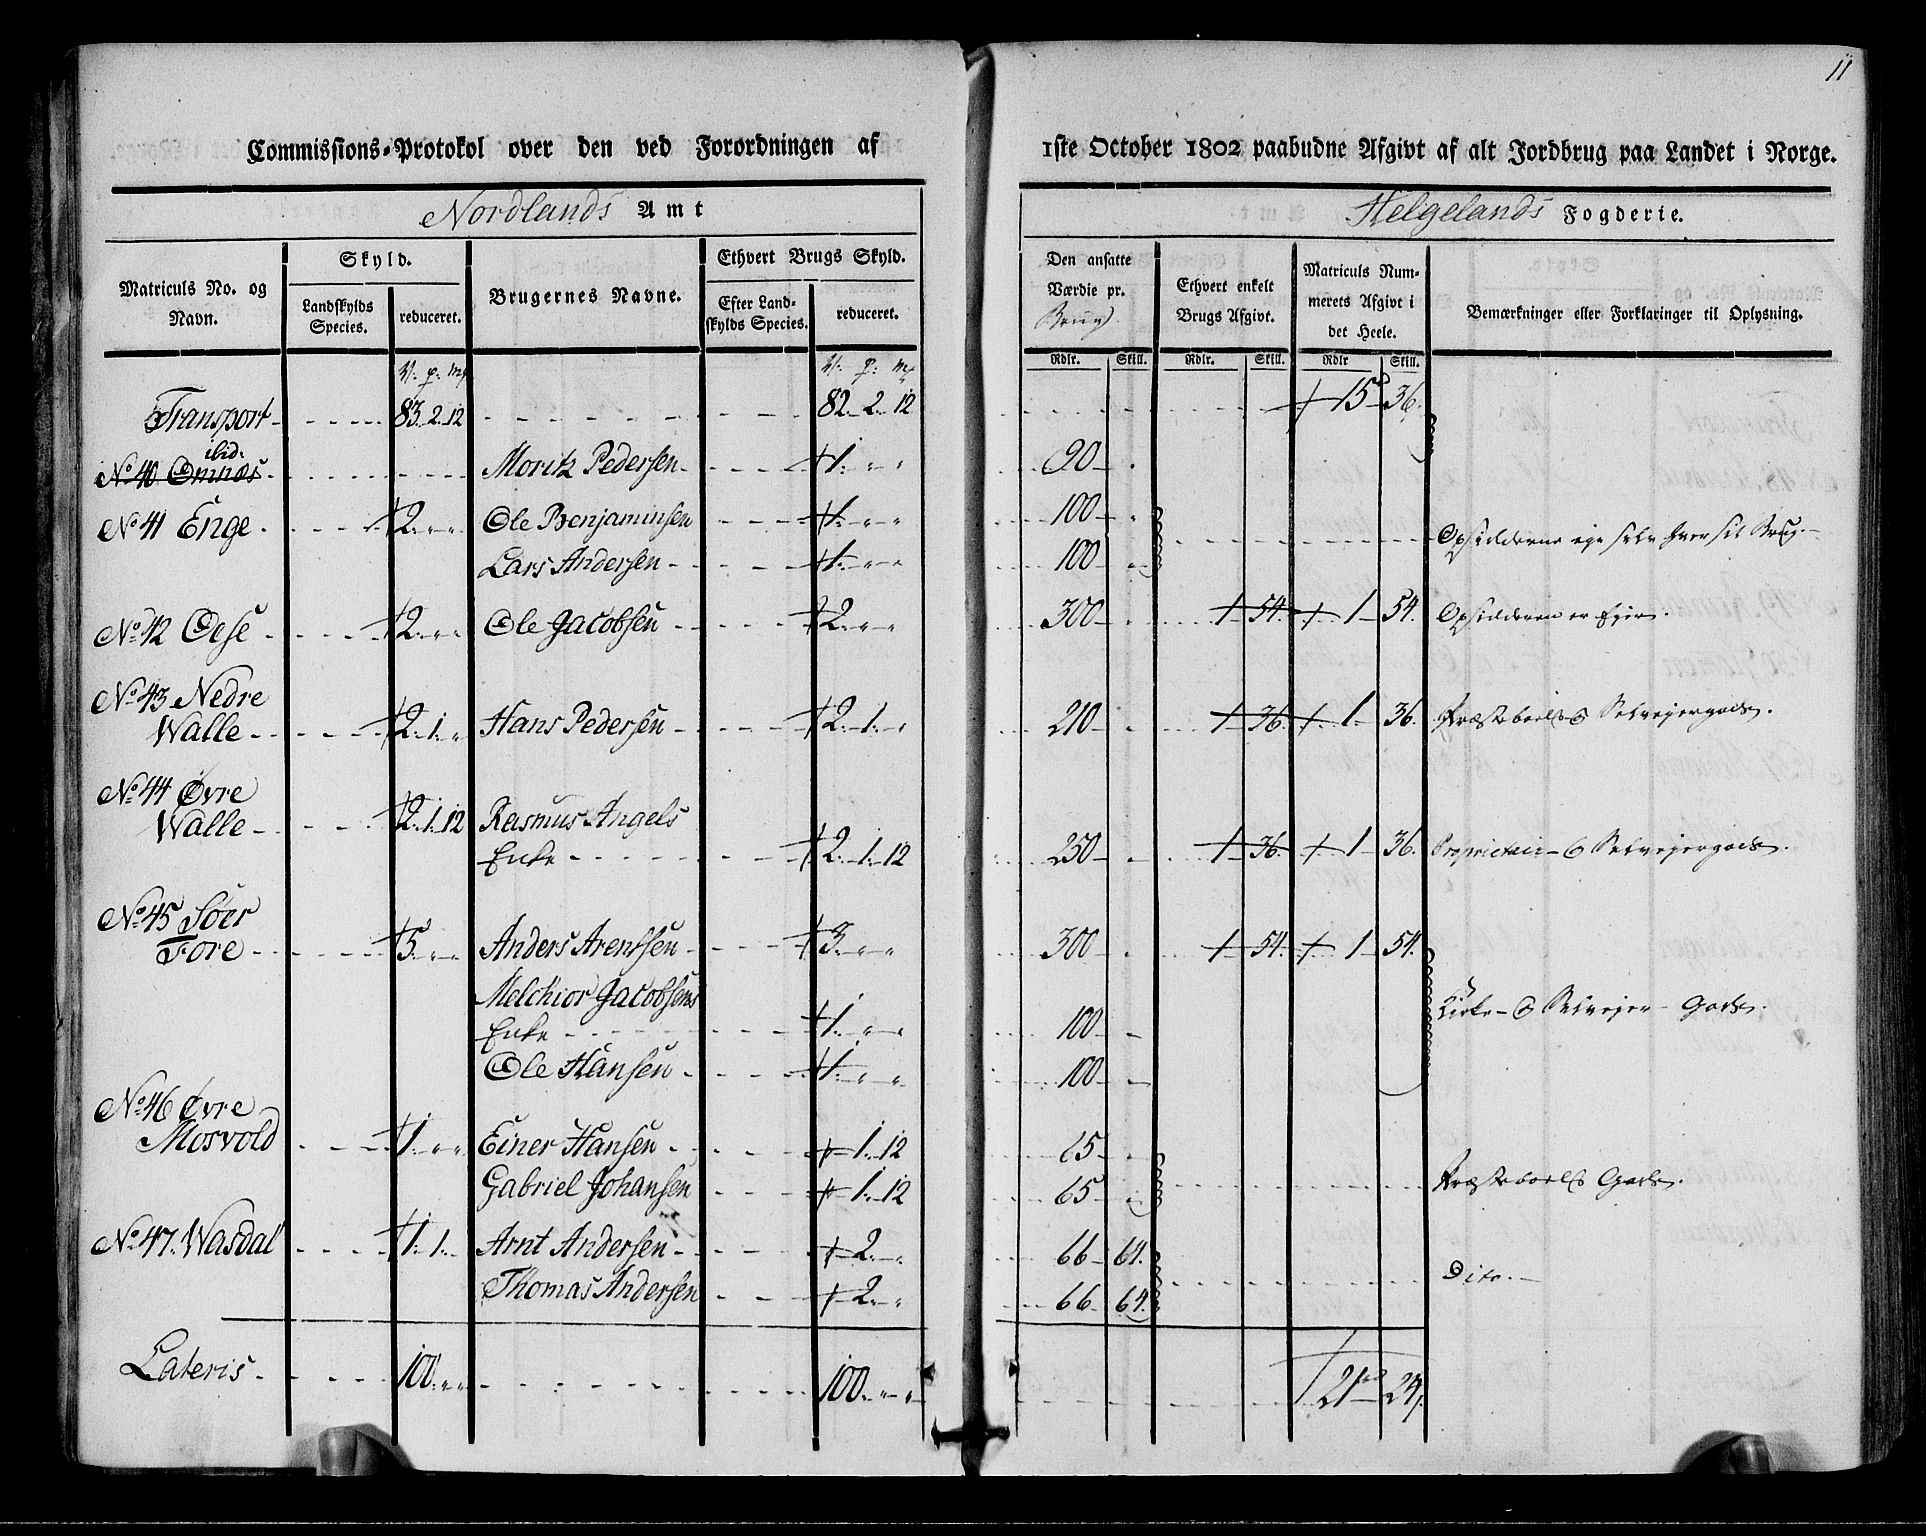 11
Commissions-Protokol over den ved Forordningen af
1ste October 1802 paabudne Afgivt af alt Jordbrug paa Landet i Norge.
Nordlands Amt
Helgelands Fogderie.
Matriculs No. og Navn.
Skyld.
Landskylds Species.
reduceret.
Brugernes Navne.
Ethvert Brugs Skyld.
Efter Landskylds Species.
reduceret.
Den ansatte Værdie pr. Brug.
Ethvert enkelt Brugs Afgivt.
Matriculs Nummerets Afgivt i det Heele.
Bemærkninger eller Forklaringer til Oplysning.
Rdlr. Skill. Rdlr. Skill. Rdlr Skill.
Transport 83. 2. 12 82. 2. 12 15 36.
ibid:
No 40 Omnæs Moritz Pedersen 1. " " 90
No 41 Enge 2. " " Ole Benjaminsen 1. " " 100
Lars Andersen 1. " " 100 Opsidderne eje selv hver sit Brug.
No 42 Oese 2. " " Ole Jacobsen 2. " " 300 1 54. 1 54. Opsidderen er Ejer.
No 43 Nedre
Walle 2. 1. " Hans Pedersen 2. 1. " 210 1 36. 1 36. Præsteboels & Selvejergods.
No 44 Øvre
Walle 2. 1. 12 Rasmus Angels
Enke 2. 1. 12 250 1 36. 1 36. Proprietair & Selvejergods.
No 45 Søer
Fore 5. " " Anders Arentsen 3. " " 300 1 54. 1 54.
Melchior Jacobsens
Enke 1. " " 100 Kirke & Selvejer Gods.
Ole Hansen 1. " " 100
No 46 Øvre
Mosvold 1. " " Einer Hansen 1. 12 65
Gabriel Johansen 1. 12 65 Præsteboels Gods.
No 47. Wasdal 1. 1. Arnt Andersen 2. " 66 64.
Thomas Andersen 2. " 66 64. Dito.
Lateris 100. " " 100. " " 21 24.